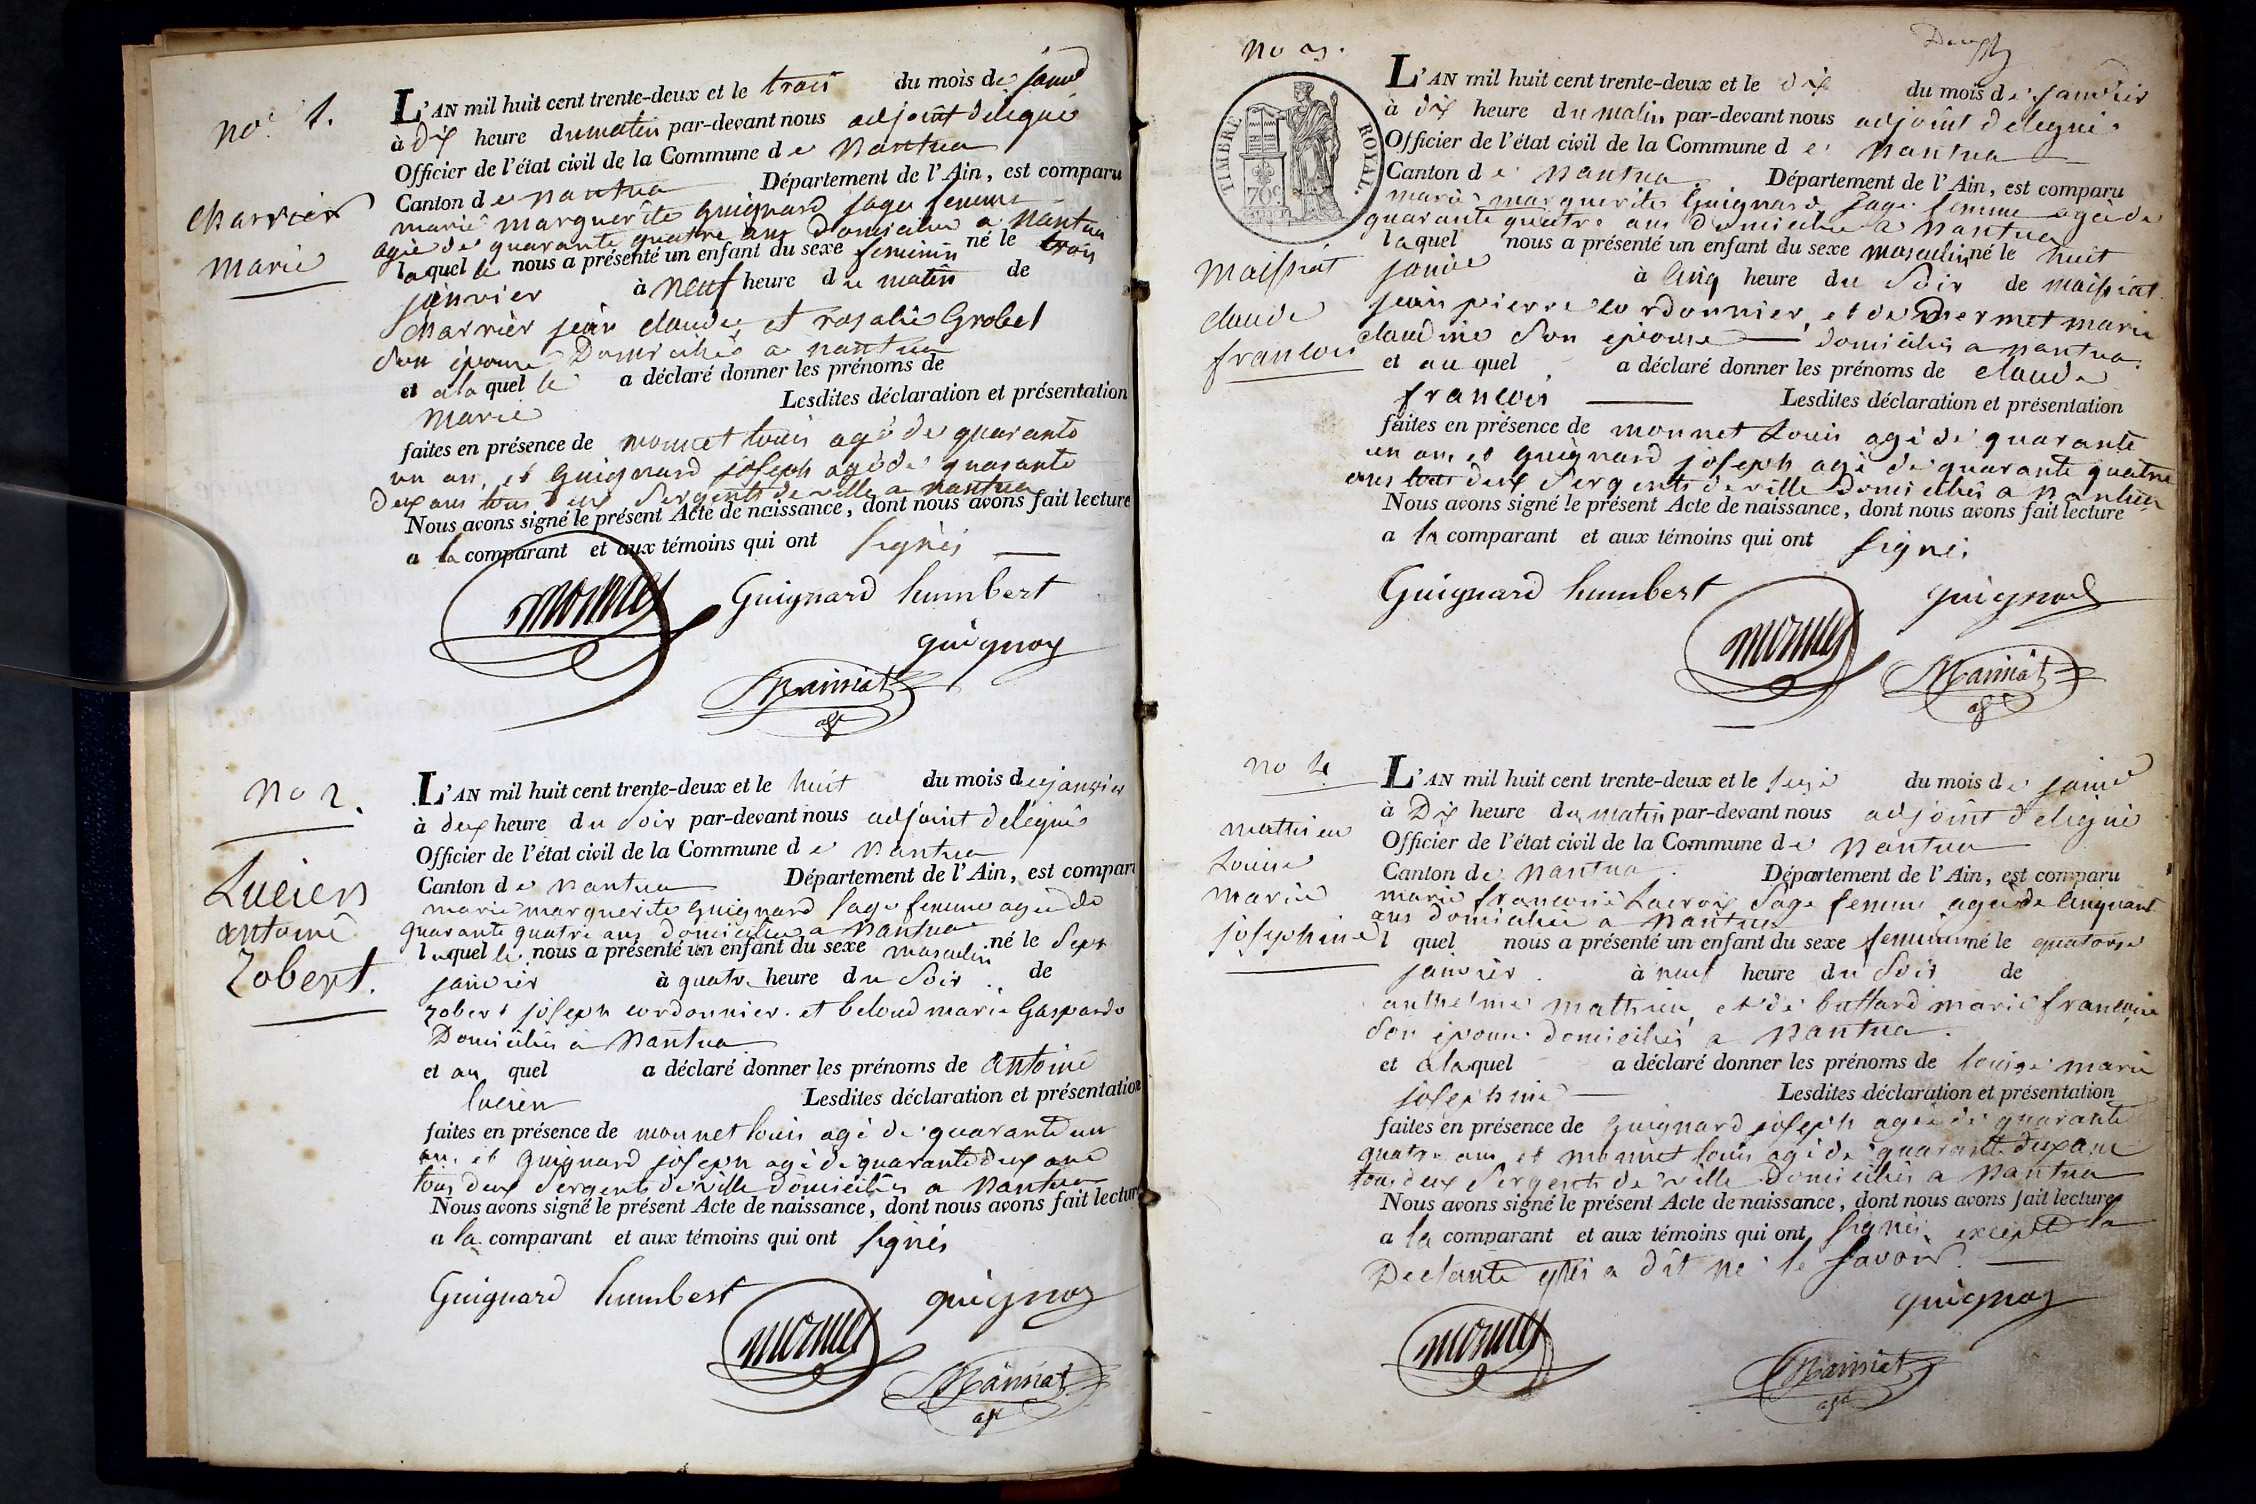 no. 1.
Charvier
marie
L'AN mil huit cent trente-deux et le trois du mois de janv
à Dix heure du matin par-devant nous adjoint delegué
Officier de l'état civil de la Commune de Nantua
Canton de nantua Département de l'Ain, est comparu
marie marguerite guignard sage femme
agée de quarante quatre ans domiciliee a Nantua
laquelle nous a présenté un enfant du sexe feminin né le trois
janvier à neuf heure du matin de
charvier jean claude, et rosalie Grobel
son épouse Domiciliés a nantua
et a laquelle a déclaré donner les prénoms de
marie Lesdites déclaration et présentation
faites en présence de monnet louis agé de quarante
un an, et Guignard joseph agé de quarante
deux ans tous deux sergents de ville a nantua
Nous avons signé le présent Acte de naissance, dont nous avons fait lecture
a la comparant et aux témoins qui ont signés
monnet Guignard humbert
guignard
Mainiat
adt
no 2.
Lucien
antoine
Robert.
L'AN mil huit cent trente-deux et le huit du mois de janvier
à deux heure du soir par-devant nous adjoint delegué
Officier de l'état civil de la Commune de nantua
Canton de nantua Département de l'Ain, est comparu
marie marguerite Guignard sage femme agée de
quarante quatre ans domiciliee a Nantua
laquelle nous a présenté un enfant du sexe masculin né le sept
janvier à quatre heure du soir de
robert joseph cordonnier et beloud marie Gasparde
Domiciliés à Nantua
et au quel a déclaré donner les prénoms de antoine
lucien Lesdites déclaration et présentation
faites en présence de monnet louis agé de quarante un
an. et guignard joseph agé de quarante deux ans
tous deux sergents de ville domiciliés a Nantua
Nous avons signé le présent Acte de naissance, dont nous avons fait lecture
a la comparant et aux témoins qui ont signés
Guignard humbert guignard
monnet
Mainiat
adt
no 3.
TIMBRE ROYAL.
70c
Maissiat
claude
francois
L'AN mil huit cent trente-deux et le dix du mois de janvier
à dix heure du matin par-devant nous adjoint delegué
Officier de l'état civil de la Commune de nantua
Canton de Nantua Département de l'Ain, est comparu
marie marguerite Guignard sage femme agée de
quarante quatre ans domiciliee a Nantua
laquel nous a présenté un enfant du sexe masculin né le huit
janvie à cinq heure du soir de maissiat
jean pierre cordonnier, et de mermet marie
claudine son epouse domiciliés a nantua.
et au quel a déclaré donner les prénoms de claude
francois Lesdites déclaration et présentation
faites en présence de monnet Louis agé de quarante
un an, et guignard joseph agé de quarante quatre
ans tous deux sergents de ville domiciliés a nantua
Nous avons signé le présent Acte de naissance, dont nous avons fait lecture
a la comparant et aux témoins qui ont signé.
Guignard humbert guignard
monnet
Mainiat
adt
no 4
mathieu
Louise
marie
josephine
L'AN mil huit cent trente-deux et le seize du mois de janvi
à Dix heure du matin par-devant nous adjoint delegué
Officier de l'état civil de la Commune de Nantua
Canton de Nantua. Département de l'Ain, est comparu
marie francoise Lacroix sage femme agée de cinquant
ans domiciliée a Nantua
l quel nous a présenté un enfant du sexe feminin né le quatorze
janvier à neuf heure du soir de
anthelme mathieu, et de buffard marie francoise
son épouse domiciliés a Nantua.
et a laquel a déclaré donner les prénoms de louise marie
josephine Lesdites déclaration et présentation
faites en présence de Guignard joseph agé de quarante
quatre ans et monnet louis agé de quarante deux ans
tous deux sergents de ville domiciliés a Nantua
Nous avons signé le présent Acte de naissance, dont nous avons fait lecture
a la comparant et aux témoins qui ont signés excepté la
Declante qui a dit ne le savoir.
guignard
monnet
Mainiat
adt